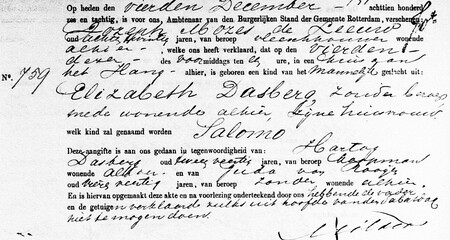 Op heden den vierden December achttien honderd
zes en tachtig, is voor ons, Ambtenaar van den Burgerlijken Stand der Gemeente Rotterdam, verschenen
Mozes de Leeuw
oud jaren, van beroep vleeschhouwer wonende
alhier welke ons heeft verklaard, dat op den vierden
dezer des voormiddags ten ure, in een huis aan
het Hang alhier, is geboren een kind van het Mannelijk geslacht uit:
No. 759
Elizabeth Dasberg, zonder beroep
mede wonende alhier, zijne huisvrouw
welk kind zal genaamd worden Salomo
Deze aangifte is aan ons gedaan in tegenwoordigheid van: Hartog
Dasberg oud jaren, van beroep Koopman
wonende alhier en van Juda van
oud veertig jaren, van beroep zonder wonende alhier.
En is hiervan opgemaakt deze akte en na voorlezing onderteekend door ons, hebbende de vader
en de getuigen verklaard zulks uit hoofde van der
niet te mogen doen.